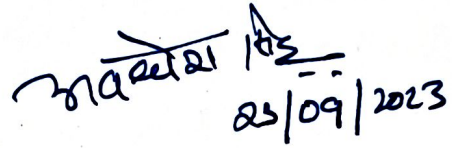 अवधेश सिंह
25/09/2023